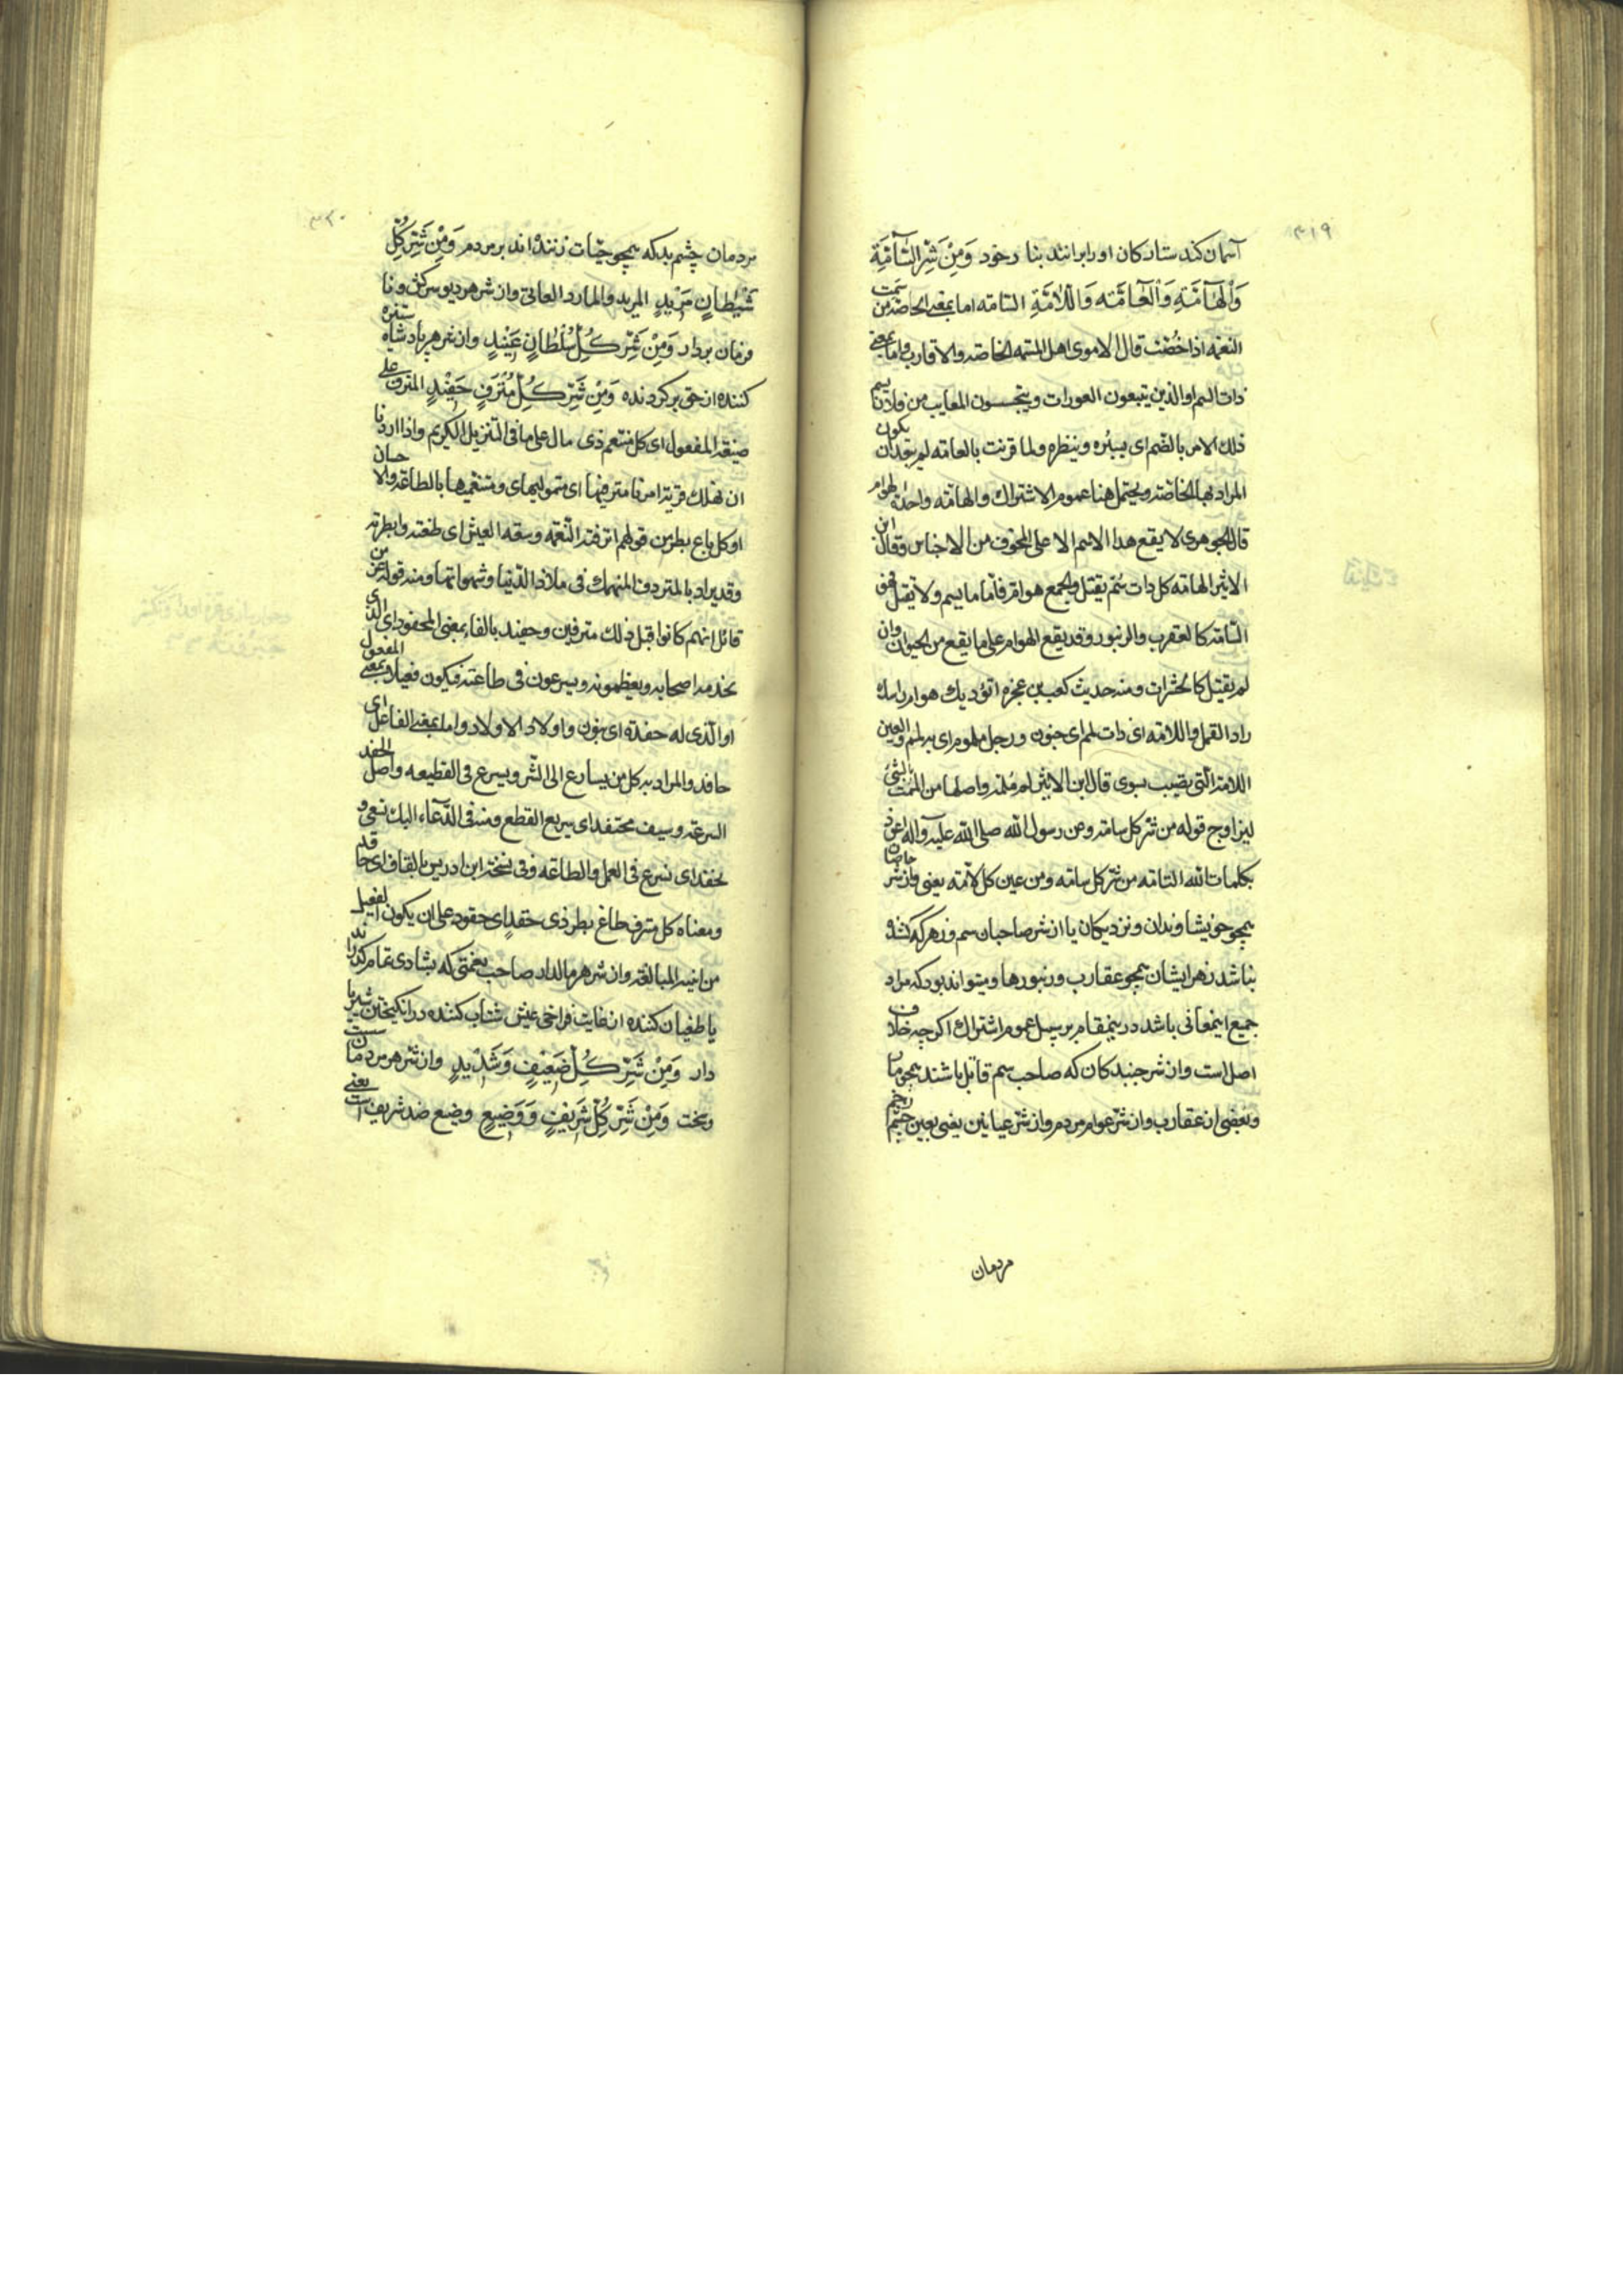 ۳۱۹
آسمان کند ستارکان او را برانند بنا رخود وَمِنْ شَرِّ السَّآمَّةِ
وَالْهَآمَّةِ وَالْعَآمَّه وَاللّامَّةِ السّامه اما بمعنی الخاصّه من سمت
النعمه اذا خصّت قال الاموی اهل المسمّه الخاصّه والاقارب واما بمعنی
ذات السم او الذین یتبعون العورات ویتجسسون المعایب من فلان یسم
ذلک الامر بالضم ای یسبره وینظره ولما قرنت بالعامّه لم یبعد ان یکون
المراد بها الخاصّه ویحتمل هنا عموم الاشتراک والهامّه واحدة الهوام
قال الجوهری لا یقع هذا الاسم الا علی المخوف من الاحناس وقال ابن
الاثیر الهامّه کل ذات سم یقتل والجمع هوام فامّا ما یسم ولا یقتل فهو
السّامّه کالعقرب والزنبور وقد یقع الهوام علی ما یقع من الحیوان وان
لم یقتل کالحشرات ومنه حدیث کعب بن عجره اتؤدیک هوام راسک
راد القمل واللامّه ای ذات لمم ای جنون ورجل ملموم ای به لمم والعین
اللامّة الّتی تصیب بسوی قال ابن الاثیر لم ملمّه واصلها من الممت بالشئ
لیزاوج قوله من شر کل سامّه وعن رسول الله صلی الله علیه وآله اعوذ
بکلمات الله التامّه من شر کل سامّه ومن عین کل لامّه یعنی واز شر خاصان
همچو خویشاوندان ونزدیکان یا از شر صاحبان سم وزهر که کشنده
نباشد زهر ایشان همچو عقارب وزنبورها ومیتواند بود که مراد
جمیع اینمعانی باشد درینمقام بر سبیل عموم اشتراک اکرچه خلاف
اصل است واز شر جنبدکان که صاحب سم قاتل باشند همچو مار
وبعضی از عقارب واز شر عوام مردم واز شر عیاینین یعنی بعین چشم زخم
مردمان
۳۲۰
مردمان چشم بد که همچو حیّات زننده اند بر مردم وَمِنْ شَرِّ کُلِّ
شَیْطانٍ مَرْیدٍ المرید والمارد العاتی واز شر هر دیو سرکش ونا
فرمان بردار وَمِنْ شَرِّ کُلِّ سُلْطانٍ عَنِیْدٍ واز شر هر پادشاه ستیزه
کننده از حق برکردنده وَمِنْ شَرِّ کُلِّ مُتْرَفٍ حَفِیْدٍ المترف علی
صیغة المفعول ای کل متنعم ذی مال علی ما فی التنزیل الکریم واذا اردنا
ان نهلک قریة امرنا مترفیها ای متمولیهای ومتنعمیها بالطاعة والاحسان
او کل باغ بطر من قولهم اترفته النّعمه وسعة العیش ای طغته وابطرته
وقد یراد بالمترف المنهمک فی ملاذ الدّنیا وشهواتها ومنه قوله عز من
قائل انهم کانوا قبل ذلک مترفین وحفید بالفاء بمعنی المحفود ای الذی
یخدمه اصحابه ویعظمونه ویسرعون فی طاعته فیکون فعیلا بمعنی المفعول
او الّذی له حفدة ای بنون واولاد الاولاد واما بمعنی الفاعل ای
حافد والمراد به کل من یسارع الی الشر ویسرع فی القطیعه واصل الحفد
السرعة وسیف محتفد ای سریع القطع ومنه فی الدّعاء الیک نسعی و
نحفد ای نسرع فی العمل والطاعه وفی نسخة ابن ادریس بالقاف ای حاقد
ومعناه کل مترف طاغ بطر ذی حقد ای حقود علی ان یکون الفعیل
من ابنیة المبالغة واز شر هر مالدار صاحب نعمتی که بشادی تمام کذراند
یا طغیان کننده از غایت فراخی عیش شتاب کننده در انکیختن شر یا
دار وَمِنْ شَرِّ کُلِّ ضَعِیْفٍ وَشَدْیدٍ واز شر هر مردمان سست
وسخت وَمِنْ شَرِّ کُلِّ شَرِیْفٍ وَوَضِیْعٍ وضیع ضد شریف است یعنی